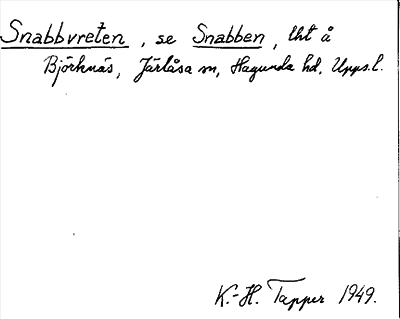 Snabbvreten, se Snabben, lht å
Björknäs, Järlåsa sn, Hagunda hd, Upps.l.
K.-H. Tapper 1949.